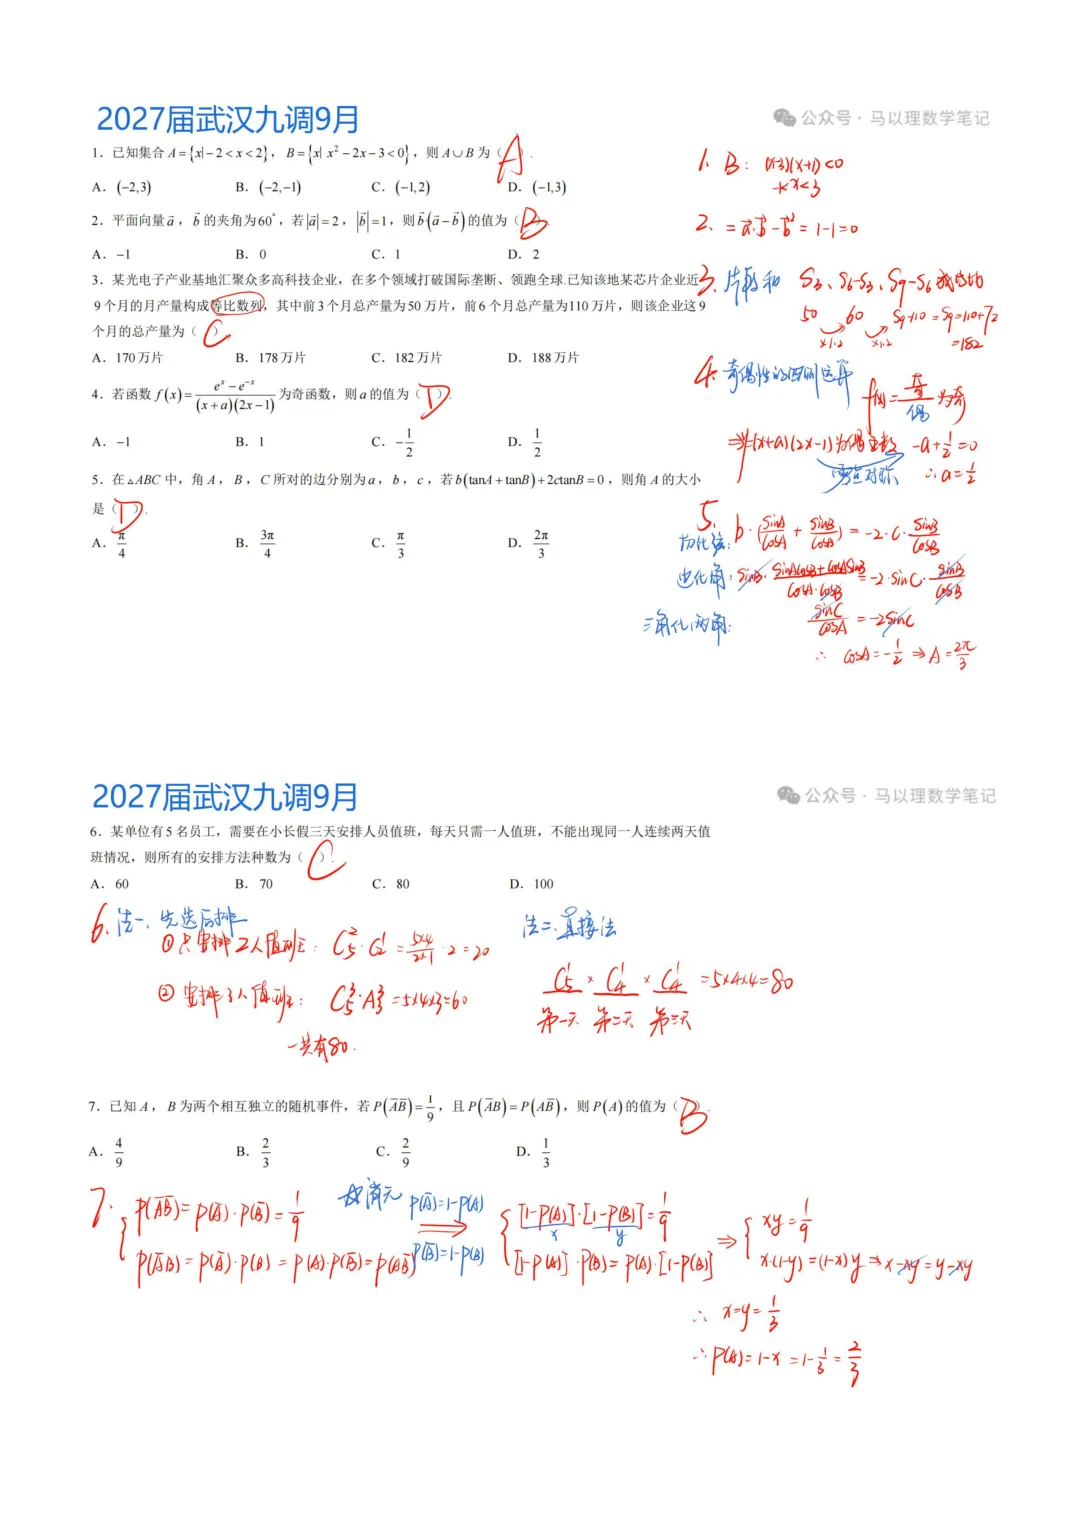 2027届武汉九调9月
公众号 · 马以理数学笔记
1. 已知集合A={x|-2<x<2}，B={x| x²-2x-3<0}，则A∪B为（ A ）.
A. (-2,3) B. (-2,-1) C. (-1,2) D. (-1,3)
2. 平面向量a⃗，b⃗的夹角为60°，若|a⃗|=2，|b⃗|=1，则b⃗(a⃗-b⃗)的值为（ B ）.
A. -1 B. 0 C. 1 D. 2
3. 某光电子产业基地汇聚众多高科技企业，在多个领域打破国际垄断、领跑全球.已知该地某芯片企业近
9个月的月产量构成等比数列，其中前3个月总产量为50万片，前6个月总产量为110万片，则该企业这9
个月的总产量为（ C ）
A. 170万片 B. 178万片 C. 182万片 D. 188万片
4. 若函数 f(x)=(eˣ-e⁻ˣ)/((x+a)(2x-1)) 为奇函数，则a的值为（ D ）.
A. -1 B. 1 C. -1/2 D. 1/2
5. 在△ABC中，角A，B，C所对的边分别为a，b，c，若b(tanA+tanB)+2ctanB=0，则角A的大小
是（ D ）.
A. π/4 B. 3π/4 C. π/3 D. 2π/3
1. B: (x-3)(x+1)<0
-1<x<3
2. = a⃗·b⃗-b⃗² = 1-1=0
3. 片段和 S₃、S₆-S₃、S₉-S₆ 成等比
50 60 S₉-110 = S₉=110+72
×1.2 ×1.2 =182
4. 奇偶性的四则运算 f(x)=奇/偶 为奇
⇒y=(x+a)(2x-1)为偶函数 -a+1/2=0
零点对称 ∴a=1/2
5. 切化弦: b·(sinA/cosA + sinB/cosB) = -2·c·sinB/cosB
边化角: sinB·(sinAcosB+cosAsinB)/(cosA·cosB) = -2·sinC·sinB/cosB
三角化两角: sinC/cosA = -2sinC
∴ cosA=-1/2 ⇒ A=2π/3
2027届武汉九调9月
公众号 · 马以理数学笔记
6. 某单位有5名员工，需要在小长假三天安排人员值班，每天只需一人值班，不能出现同一人连续两天值
班情况，则所有的安排方法种数为（ C ）.
A. 60 B. 70 C. 80 D. 100
6. 法一、先选后排
① 只安排2人值班: C₅²·C₂¹ = (5×4)/(2×1)·2=20
② 安排3人值班: C₅³·A₃³ =5×4×3=60
一共有80.
法二、直接法
C₅¹ × C₄¹ × C₄¹ =5×4×4=80
第一天 第二天 第三天
7. 已知A，B为两个相互独立的随机事件，若P(A̅B̅)=1/9，且P(A̅B)=P(AB̅)，则P(A)的值为（ B ）.
A. 4/9 B. 2/3 C. 2/9 D. 1/3
7. P(A̅B̅)=P(A̅)·P(B̅)=1/9
P(A̅B)=P(A̅)·P(B)=P(A)·P(B̅)=P(AB̅)
消元 P(A̅)=1-P(A)
P(B̅)=1-P(B)
[1-P(A)]·[1-P(B)]=1/9
x y
[1-P(A)]·P(B)=P(A)·[1-P(B)]
⇒ xy=1/9
x·(1-y)=(1-x)y ⇒x-xy=y-xy
∴ x=y=1/3
∴P(A)=1-x=1-1/3=2/3